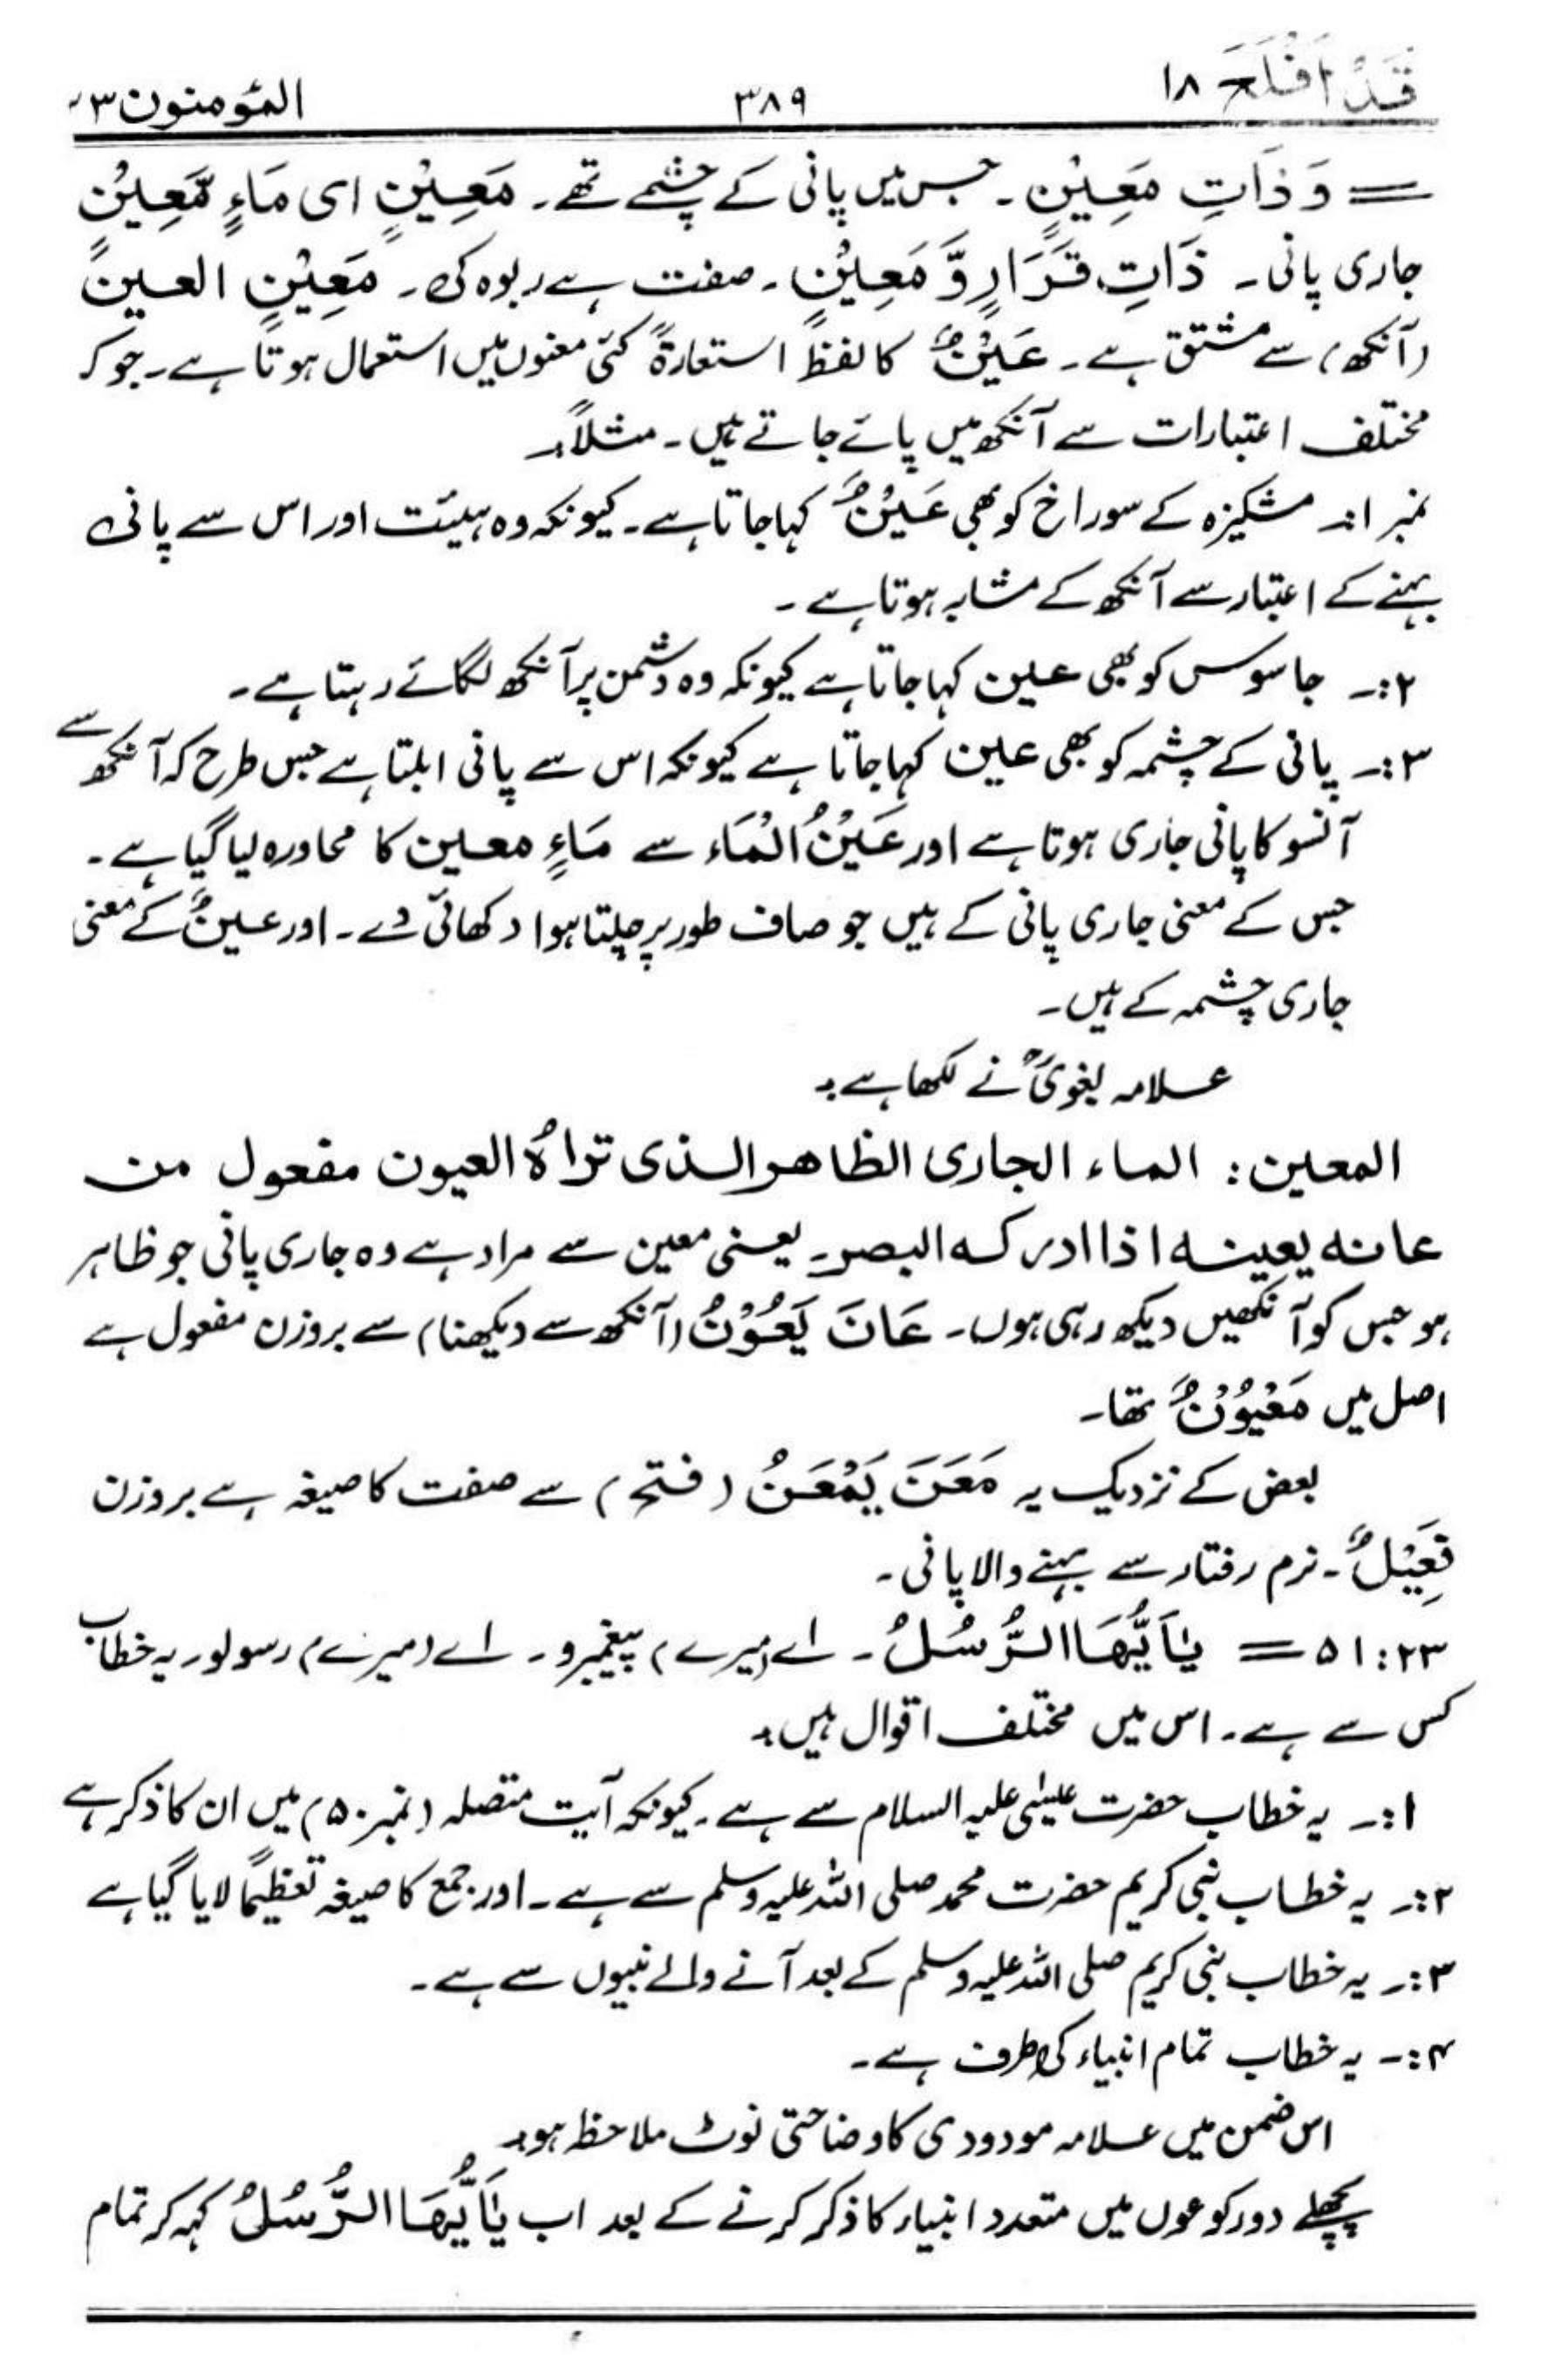 قَدْ اَفْلَحَ ۱۸ ۳۸۹ المؤمنون ۲۳
= وَ ذَاتِ مَعِيْنٍ ۔ جس میں پانی کے چشمے تھے۔ مَعِيْنٍ ای مَاءٍ مَّعِيْنٍ
جاری پانی ۔ ذَاتِ قَرَارٍ وَّ مَعِيْنٍ ۔ صفت ہے ربوہ کی ۔ مَعِيْنٍ العین
(آنکھ) سے مشتق ہے ۔ عَيْنٌ کا لفظ استعارةً کئی معنوں میں استعمال ہوتا ہے ۔ جو کہ
مختلف اعتبارات سے آنکھ میں پائے جاتے ہیں ۔ مثلاً:
نمبر ۱:۔ مشکیزہ کے سوراخ کو بھی عَيْنٌ کہا جاتا ہے ۔ کیونکہ وہ ہیئت اور اس سے پانی
بہنے کے اعتبار سے آنکھ کے مشابہ ہوتا ہے ۔
۲:۔ جاسوس کو بھی عین کہا جاتا ہے کیونکہ وہ دشمن پر آنکھ لگائے رہتا ہے ۔
۳:۔ پانی کے چشمہ کو بھی عین کہا جاتا ہے کیونکہ اس سے پانی ابلتا ہے جس طرح کہ آنکھ سے
آنسو کا پانی جاری ہوتا ہے اور عَيْنُ الْمَاء سے مَاءٍ معین کا محاورہ لیا گیا ہے ۔
جس کے معنی جاری پانی کے ہیں جو صاف طور پر چلتا ہوا دکھائی دے ۔ اور عینٌ کے معنی
جاری چشمہ کے ہیں ۔
علامہ بغویؒ نے لکھا ہے:
المعین : الماء الجاری الظاهر الذی تراہُ العیون مفعول من
عانه یعینه اذا ادرکه البصر ۔ یعنی معین سے مراد ہے وہ جاری پانی جو ظاہر
ہو جس کو آنکھیں دیکھ رہی ہوں ۔ عَانَ يَعُوْنُ (آنکھ سے دیکھنا) سے بروزن مفعول ہے
اصل میں مَعْيُوْنٌ تھا ۔
بعض کے نزدیک یہ مَعَنَ يَمْعَنُ (فتح) سے صفت کا صیغہ ہے بروزن
فَعِيْلٌ ۔ نرم رفتار سے بہنے والا پانی ۔
۲۳: ۵۱ = يٰاَيُّهَا الرُّسُلُ ۔ اے (میرے) پیغمبرو ۔ اے (میرے) رسولو ۔ یہ خطاب
کس سے ہے ۔ اس میں مختلف اقوال ہیں:
۱:۔ یہ خطاب حضرت عیسٰی علیہ السلام سے ہے ۔ کیونکہ آیت متصلہ (نمبر ۵۰) میں ان کا ذکر ہے
۲:۔ یہ خطاب نبی کریم حضرت محمد صلی اللہ علیہ وسلم سے ہے ۔ اور جمع کا صیغہ تعظیماً لایا گیا ہے
۳:۔ یہ خطاب نبی کریم صلی اللہ علیہ وسلم کے بعد آنے والے نبیوں سے ہے ۔
۴:۔ یہ خطاب تمام انبیاء کی طرف ہے ۔
اس ضمن میں علامہ مودودی کا وضاحتی نوٹ ملاحظہ ہو:
پچھلے دو رکوعوں میں متعدد انبیاء کا ذکر کرنے کے بعد اب يٰاَيُّهَا الرُّسُلُ کہہ کر تمام